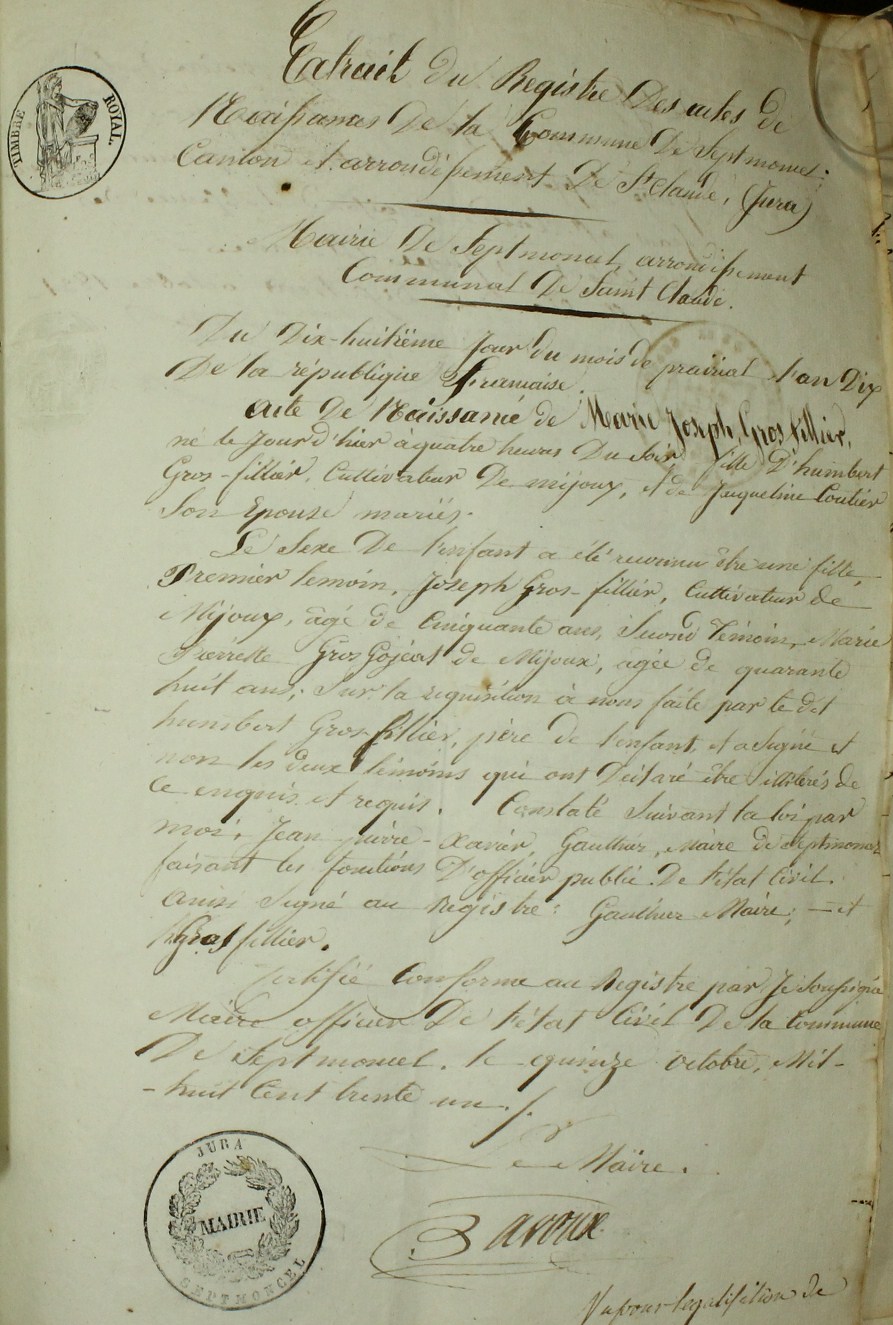 TIMBRE ROYAL
Extrait du Registre Des actes de
Naissances De la Commune De Septmoncel,
Canton et arrondissement De St Claude, (Jura)
Mairie De Septmoncel, arrondissement
Communal De Saint Claude.
Du Dix-huitième Jour du mois de prairial l'an Dix
De la république Francaise.
acte De Naissance de Marie Joseph Gros fillier,
né le Jour d'hier à quatre heures Du Soir fille D'humbert
Gros-fillier, Cultivateur De mijoux, et de Jaqueline Coutier
Son Epouse mariés.
Le Sexe De l'enfant a été reconnu être une fille,
Premier temoin, Joseph Gros-fillier, Cultivateur de
Mijoux, âgé de Cinquante ans, Second Témoin, Marie
Pierrette Gros Gojéat de Mijoux, agée de quarante
huit ans; Sur la requisition à nous faite par le dit
humbert Gros fillier, père de l'enfant, et a Signé et
non les deux témoins qui ont Déclaré être illitérés de
Ce enquis et requis. Constaté Suivant la loi par
moi, Jean pierre-Xavier, Gauthier, Maire de Septmoncel
faisant les fonctions D'officier public De l'état Civil.
ainsi Signé au Registre: Gauthier Maire; — et
hGros fillier.
Certifié Conforme au Registre par Je Soussigné
Maire officier De l'état Civil De la Commune
De Septmoncel. le quinze octobre, Mil-
-huit Cent trente un./.
Le Maire.
Bavoux
JURA
MAIRIE
SEPTMONCEL
Vu pour légalisation de